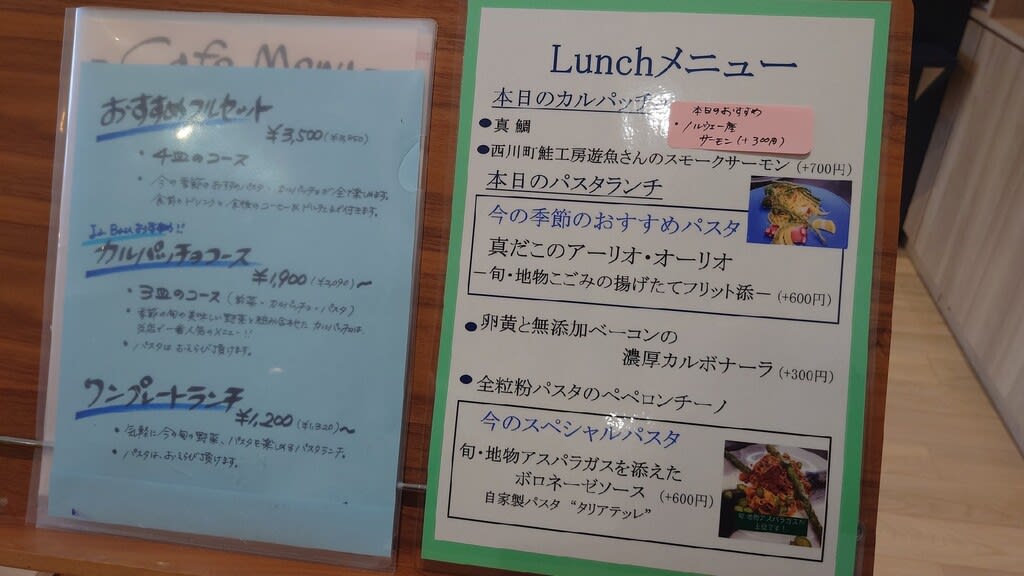 Cafe Menu
おすすめフルセット
¥3,500(¥3,850)
・4皿のコース
・今の季節のおすすめパスタ・カルパッチョが全て楽しめます。
食前のドリンクや食後のコーヒー&ドルチェも付きます。
おすすめ!!
カルパッチョコース
¥1,900(¥2,090)～
・3皿のコース(前菜・カルパッチョ・パスタ)
・季節の旬の美味しい野菜と組み合わせたカルパッチョは、
当店で一番人気のメニュー!!
・パスタはおえらび頂けます。
ワンプレートランチ
¥1,200(¥1,320)～
・気軽に今の旬の野菜、パスタを楽しめるパスタランチ。
・パスタは、おえらび頂けます。
Lunchメニュー
本日のカルパッチョ
本日のおすすめ
・ノルウェー産
サーモン(+300円)
●真鯛
●西川町鮭工房遊魚さんのスモークサーモン(+700円)
本日のパスタランチ
今の季節のおすすめパスタ
真だこのアーリオ・オーリオ
－旬・地物こごみの揚げたてフリット添－(+600円)
●卵黄と無添加ベーコンの
濃厚カルボナーラ(+300円)
●全粒粉パスタのペペロンチーノ
今のスペシャルパスタ
旬・地物アスパラガスを添えた
ボロネーゼソース(+600円)
自家製パスタ“タリアテッレ”